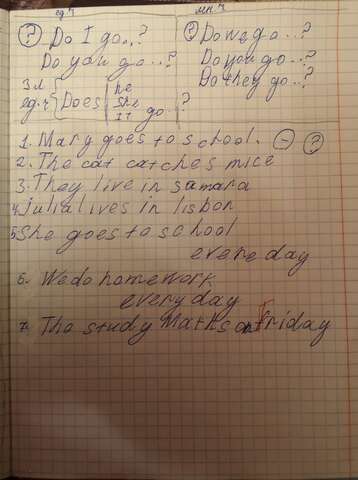 ед.ч мн.ч
? Do I go..? ? Do we go..?
Do you go..? Do you go..?
Do they go..?
3 л
ед.ч Does he
she
it go..?
1. Mary goes to school. - ?
2. The cat catches mice
3. They live in samara
4. julia lives in lisbon
5 She goes to school
evere day
6. We do homework
every day
7. The study Maths on Friday